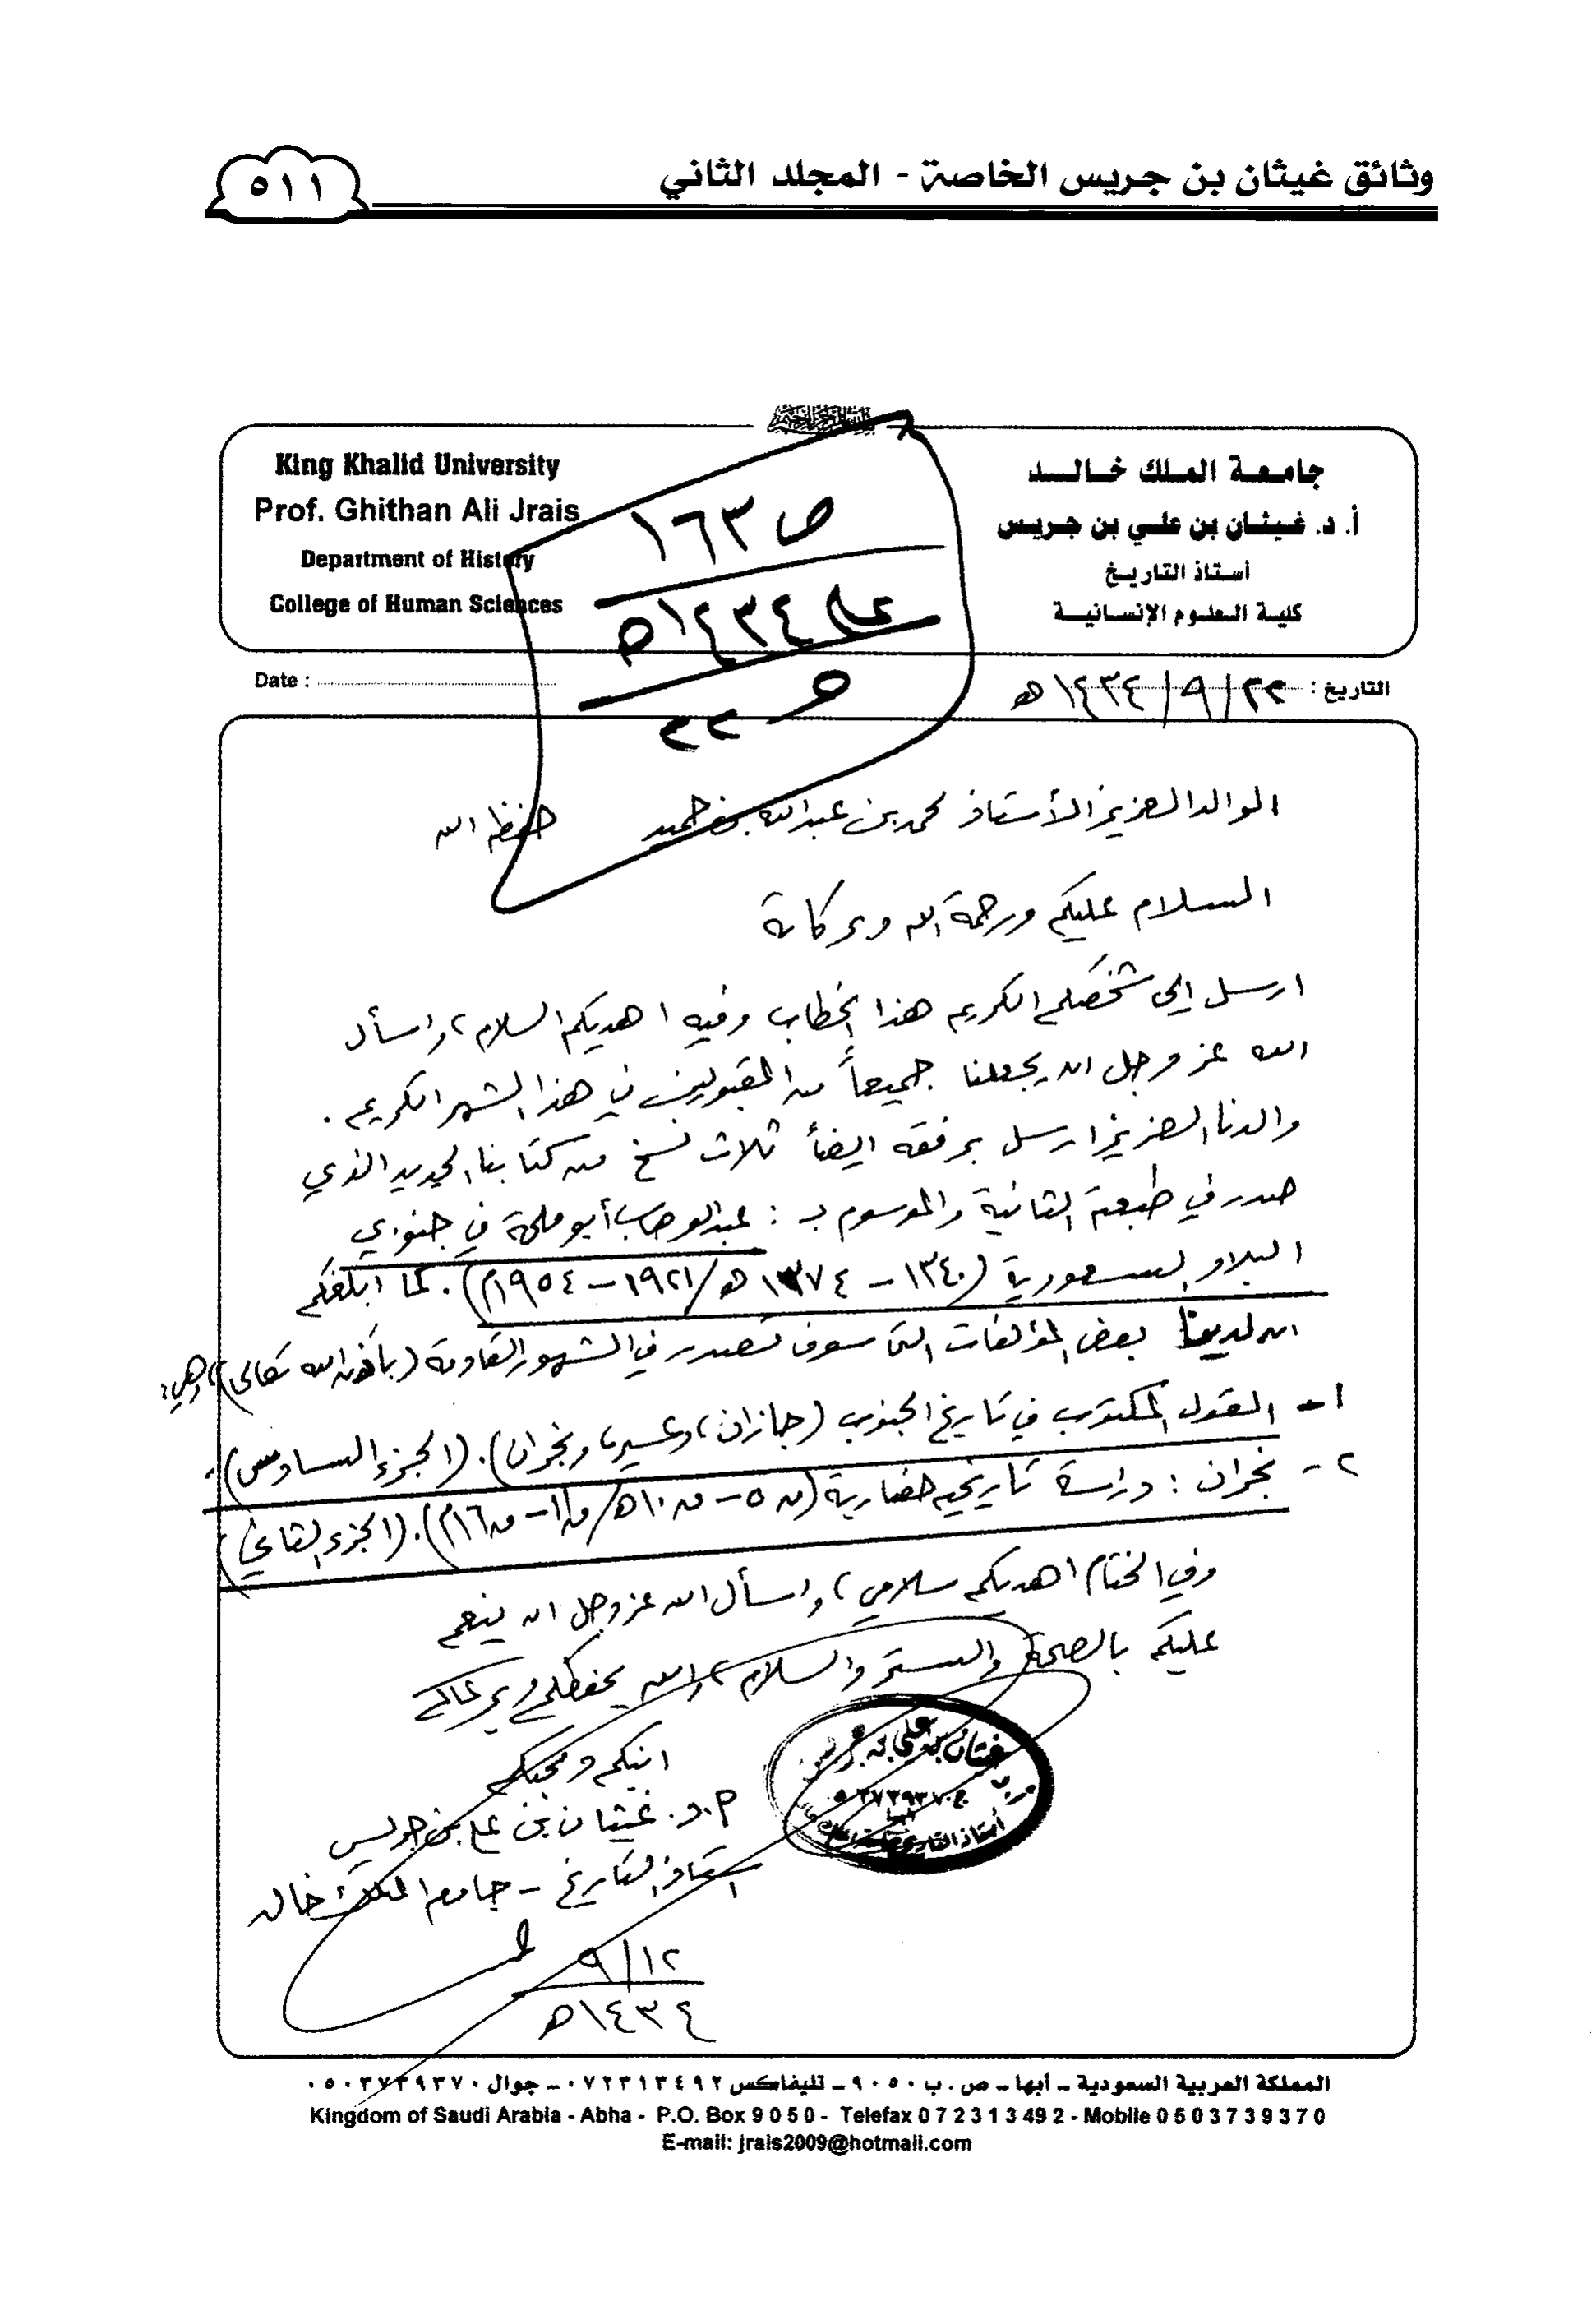 وثائق غيثان بن جريس الخاصة - المجلد الثاني
٥١١
King Khalid University
Prof. Ghithan Ali Jrais
Department of History
College of Human Sciences
جامعة الملك خالد
أ. د. غيثان بن علي بن جريس
أستاذ التاريخ
كلية العلوم الإنسانية
ص ١٦٣
١٤٣٤هـ
Date :
التاريخ : ٢٢/٩/١٤٣٤هـ
الوالد العزيز الأستاذ محمد بن عبدالله بن حميد حفظه الله
السلام عليكم ورحمة الله وبركاته
ارسل إلى شخصكم الكريم هذا الخطاب وفيه اهديكم السلام، واسأل
الله عز وجل ان يجعلنا جميعاً من المقبولين في هذا الشهر الكريم .
والدنا العزيز ارسل برفقه ايضاً ثلاث نسخ من كتابنا الجديد الذي
صدر في طبعته الثانية والموسوم بـ : عبدالوهاب أبو ملحة في جنوبي
البلاد السعودية (١٣٤٠ - ١٣٧٤هـ/١٩٢١ - ١٩٥٤م). كما ابلغكم
ان لدينا بعض المؤلفات التي سوف تصدر في الشهور القادمة (بإذن الله تعالى)، وهي:
١- القول المكتوب في تاريخ الجنوب (جازان، وعسير، ونجران). (الجزء السادس).
٢- نجران : دراسة تاريخية حضارية (ق ٥ - ق ١٠هـ/ق ١١ - ق ١٦م). (الجزء الثاني)
وفي الختام اهديكم سلامي، واسأل الله عز وجل ان ينعم
عليكم بالصحة والستر والسلام، والله يحفظكم ويرعاكم
ابنكم ومحبكم
أ.د. غيثان بن علي بن جريس
استاذ التاريخ - جامعة الملك خالد
١٢/٩
١٤٣٤هـ
غيثان بن علي بن جريس
المملكة العربية السعودية ـ أبها ـ ص . ب ٩٠٥٠ ـ تليفاكس ٠٧٢٣١٣٤٩٢ ـ جوال ٠٥٠٣٧٣٩٣٧٠
Kingdom of Saudi Arabia - Abha - P.O. Box 9 0 5 0 - Telefax 0 7 2 3 1 3 49 2 - Mobile 0 5 0 3 7 3 9 3 7 0
E-mail: jrais2009@hotmail.com